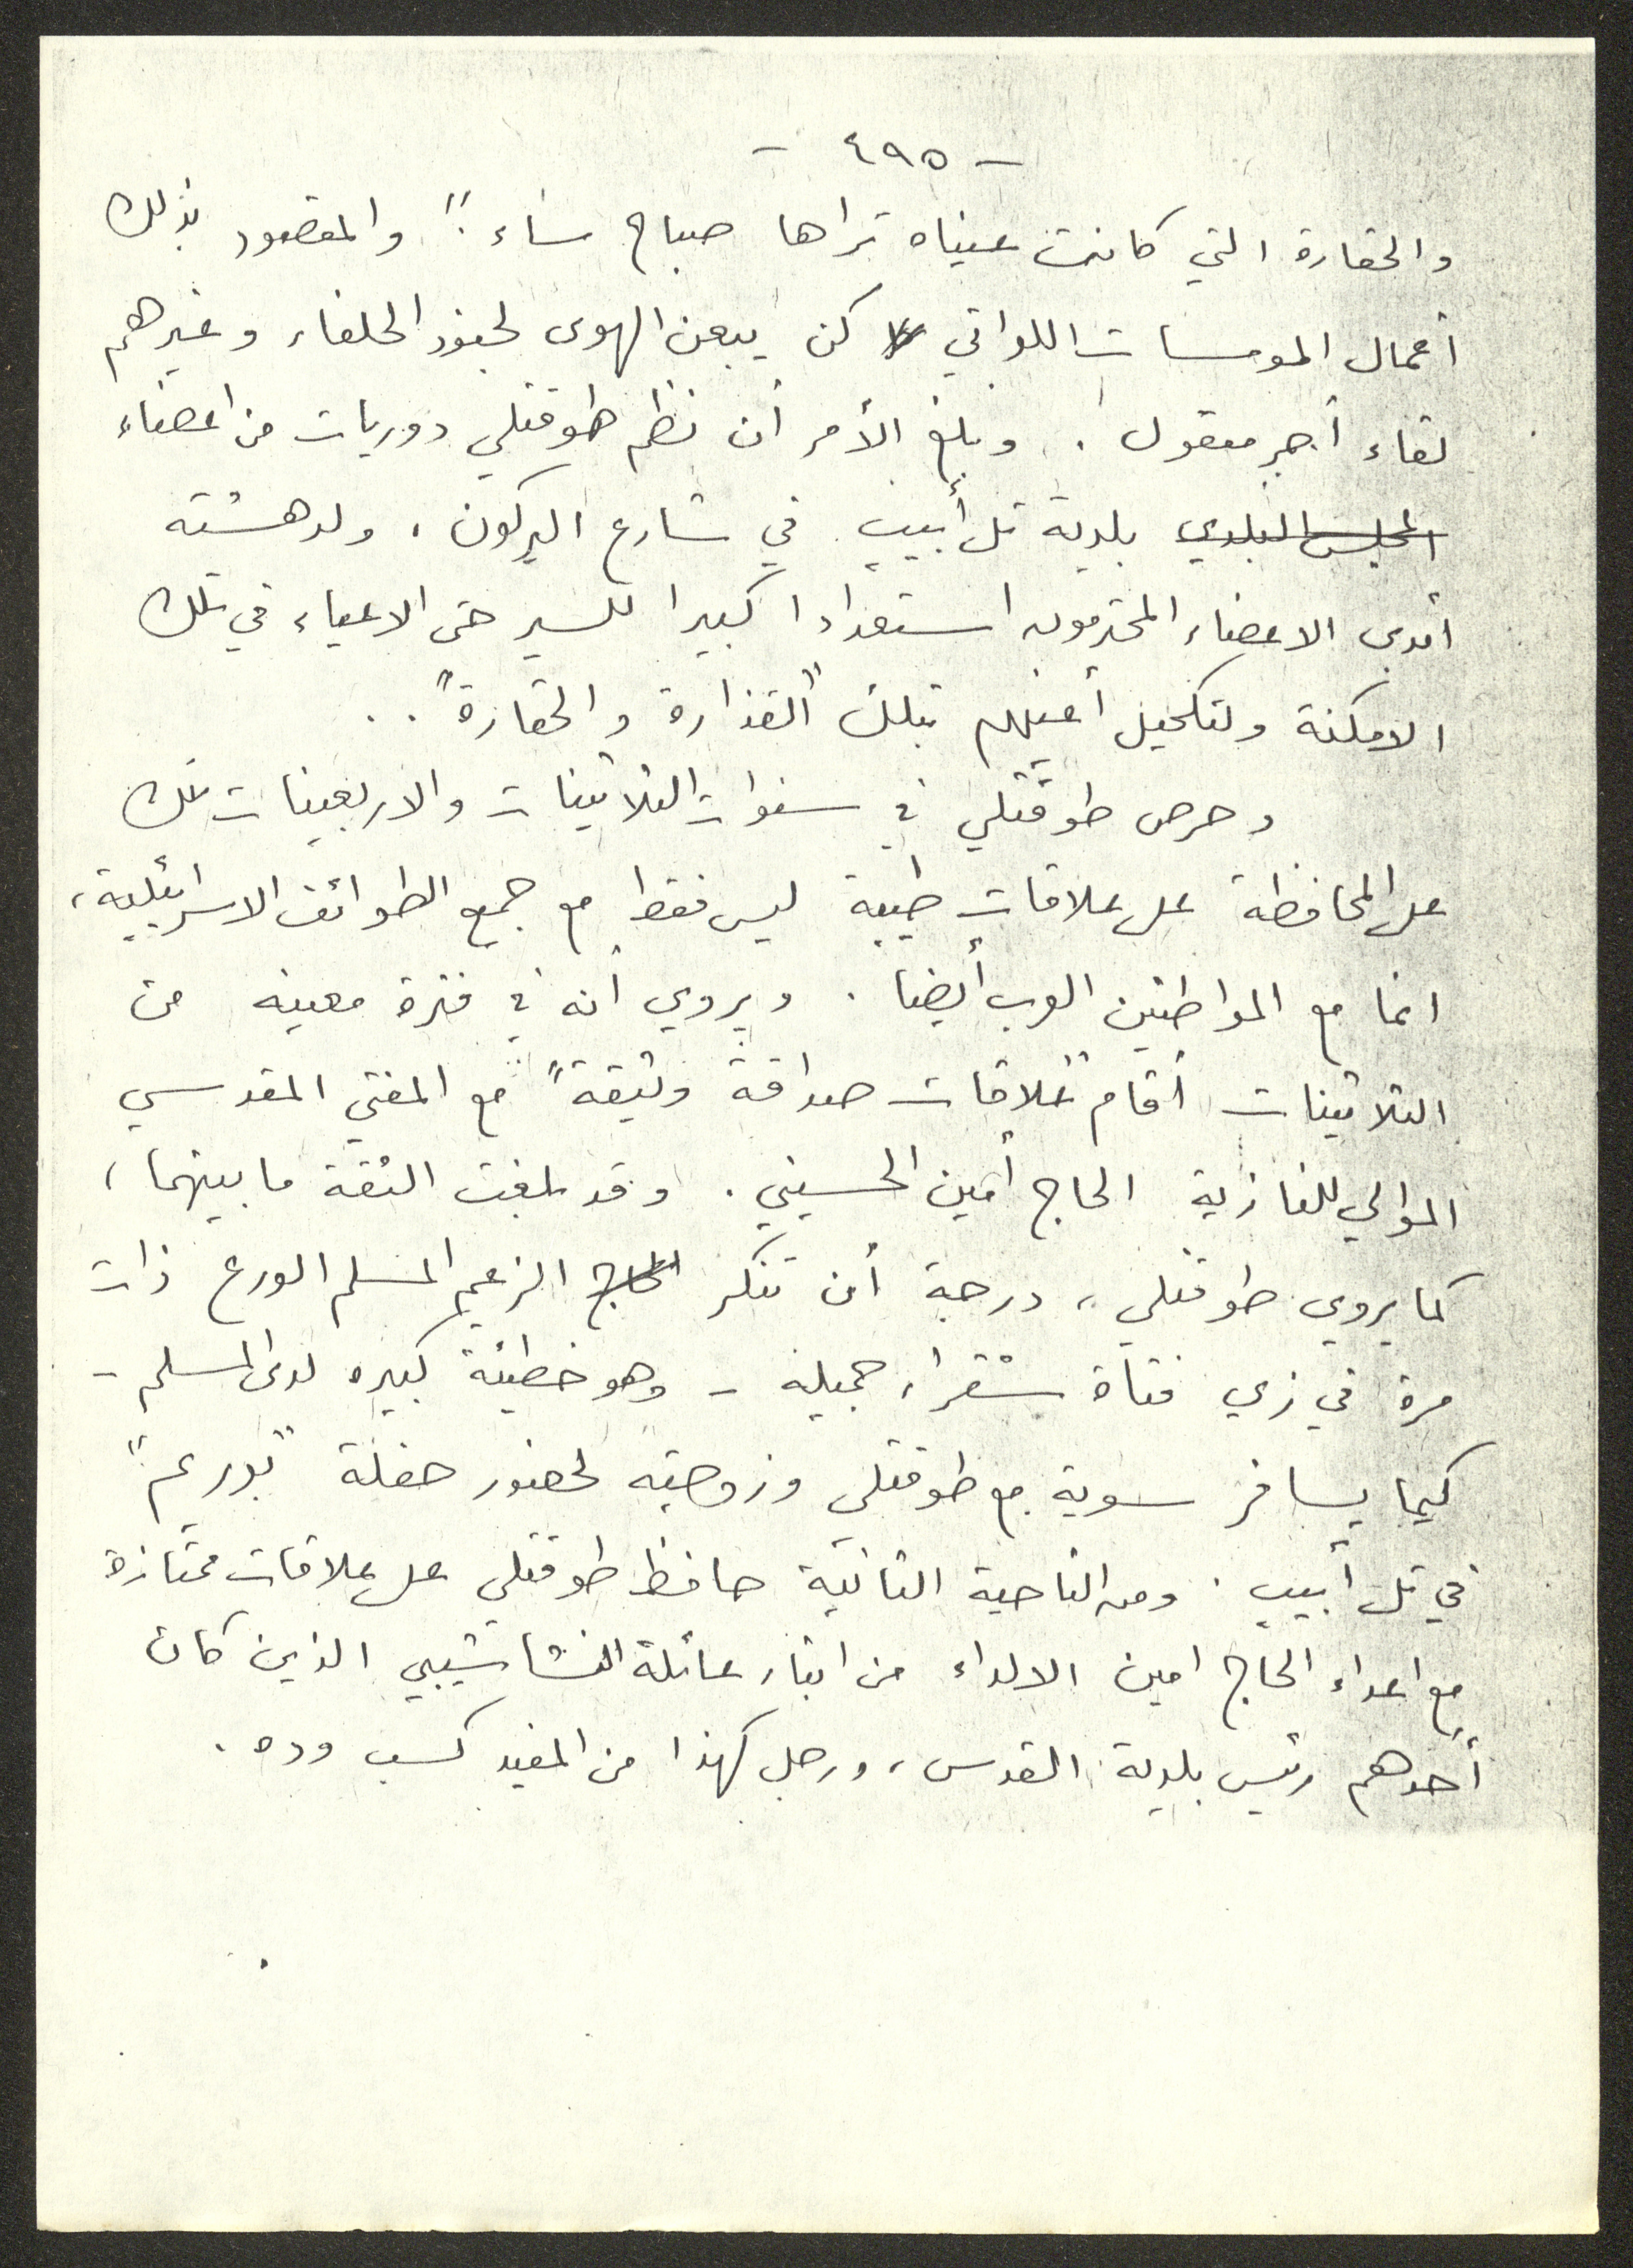 - ٤٩٥ -
والحقارة التي كانت عيناه تراها صباح مساء". والمقصود بذلك
أعمال المومسات اللواتي كن يبعن الهوى لجنود الحلفاء وغيرهم
لقاء أجر معقول. وبلغ الأمر أن نظم طوقتلي دوريات من اعضاء
المجلس البلدي بلدية تل أبيب في شارع اليركون، ولدهشته
أبدى الاعضاء المحترمون استعدادا كبيرا للسير حتى الاعياء في تلك
الامكنة ولتكحيل أعينهم بتلك "القذارة والحقارة"..
وحرص طوقتلي في سنوات الثلاثينات والاربعينات تلك
على المحافظة على علاقات طيبة ليس فقط مع جميع الطوائف الاسرائيلية،
انما مع المواطنين العرب أيضا. ويروي أنه في فترة معينه من
الثلاثينات أقام "علاقات صداقة وثيقة" مع المفتي المقدسي
الموالي للنازية الحاج أمين الحسيني. وقد بلغت الثقة ما بينهما،
كما يروي طوقتلي، درجة أن تنكر الحاج الزعيم المسلم الورع ذات
مرة في زي فتاة شقراء جميله - وهو خطيئة كبيره لدى المسلم -
كيما يسافر سوية مع طوقتلي وزوجته لحضور حفلة "بوريم"
في تل أبيب. ومن الناحية الثانية حافظ طوقتلي على علاقات ممتازة
مع اعداء الحاج امين الالداء من ابناء عائلة النشاشيبي الذين كان
أحدهم رئيس بلدية القدس، ورجل كهذا من المفيد كسب وده.